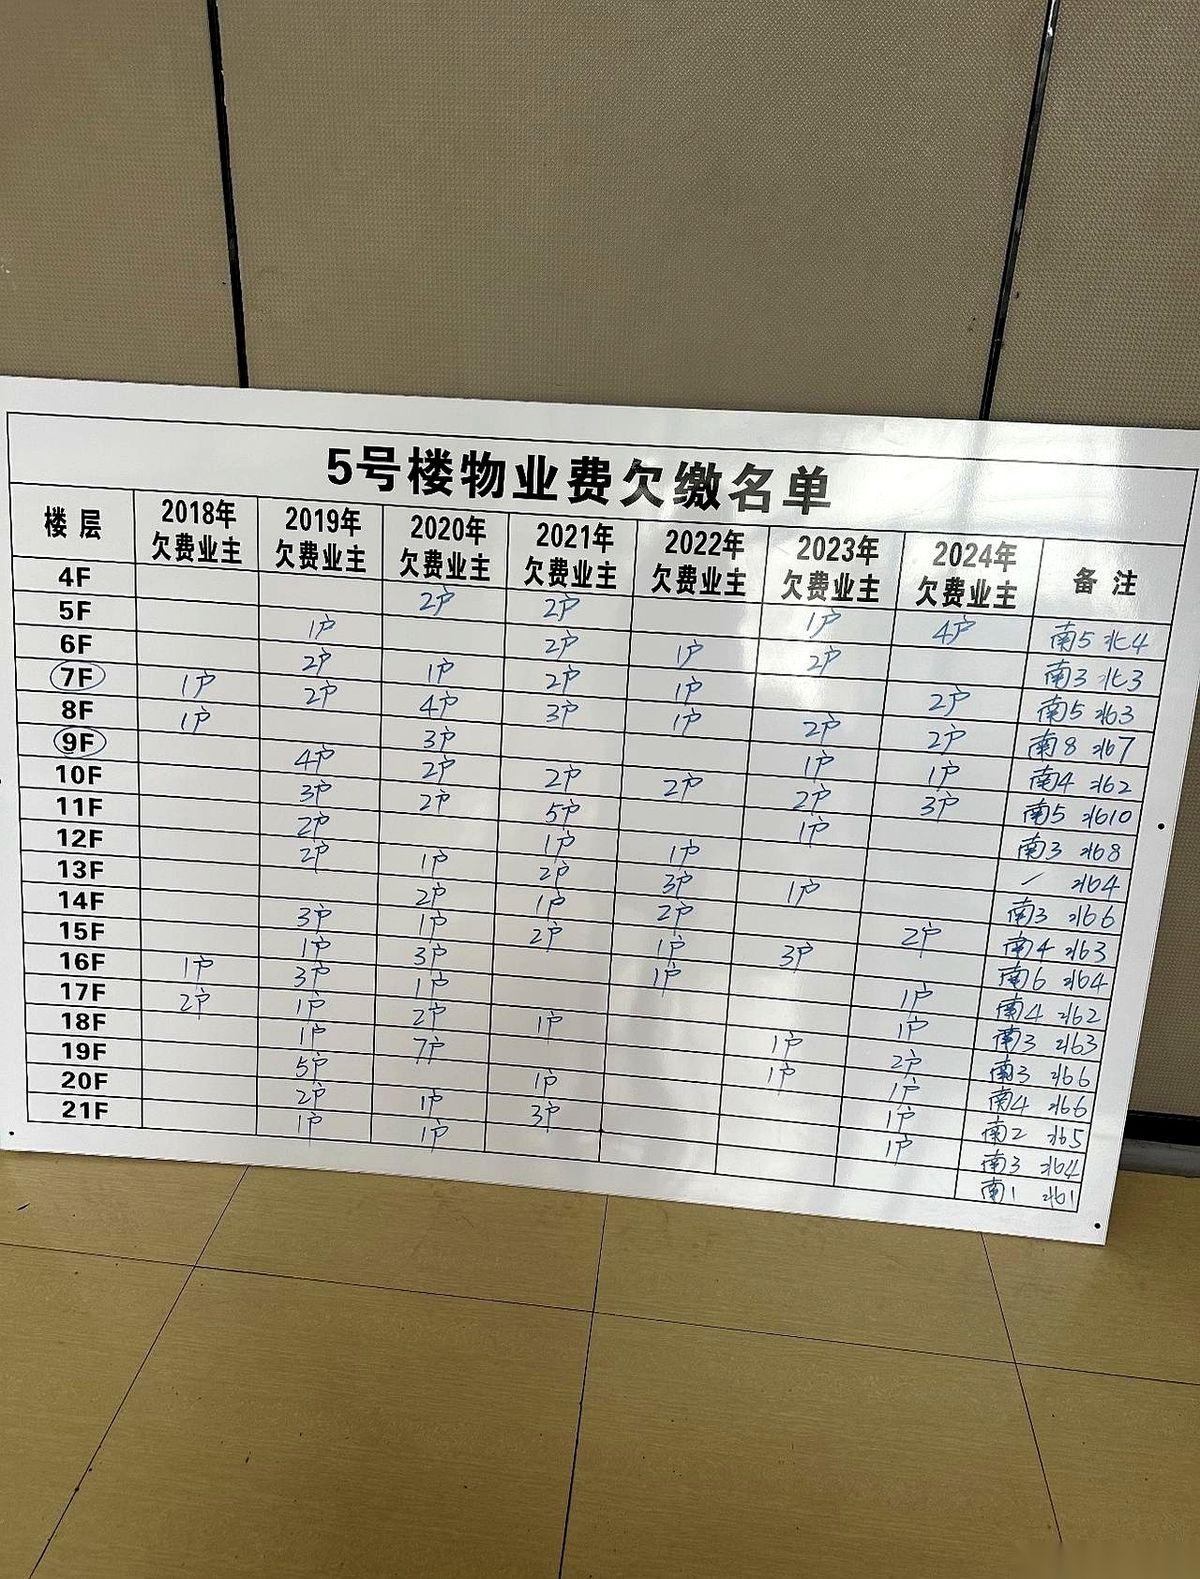 5号楼物业费欠缴名单
楼层 2018年欠费业主 2019年欠费业主 2020年欠费业主 2021年欠费业主 2022年欠费业主 2023年欠费业主 2024年欠费业主 备注
4F 2户 2户 1户 4户 南5 北4
5F 1户 2户 1户 2户 南3 北3
6F 2户 1户 2户 1户 2户 南5 北3
7F 1户 2户 4户 3户 1户 2户 2户 南8 北7
8F 1户 3户 1户 1户 南4 北2
9F 4户 2户 2户 2户 2户 3户 南5 北10
10F 3户 2户 5户 1户 南3 北8
11F 2户 1户 1户 / 北4
12F 2户 1户 2户 3户 1户 南3 北6
13F 2户 1户 2户 2户 南4 北3
14F 3户 1户 2户 1户 3户 南6 北4
15F 1户 3户 1户 1户 南4 北2
16F 1户 3户 1户 1户 南3 北3
17F 2户 1户 2户 1户 1户 2户 南3 北6
18F 1户 7户 1户 1户 南4 北6
19F 5户 1户 1户 南2 北5
20F 2户 1户 3户 1户 南3 北4
21F 1户 1户 南1 北1